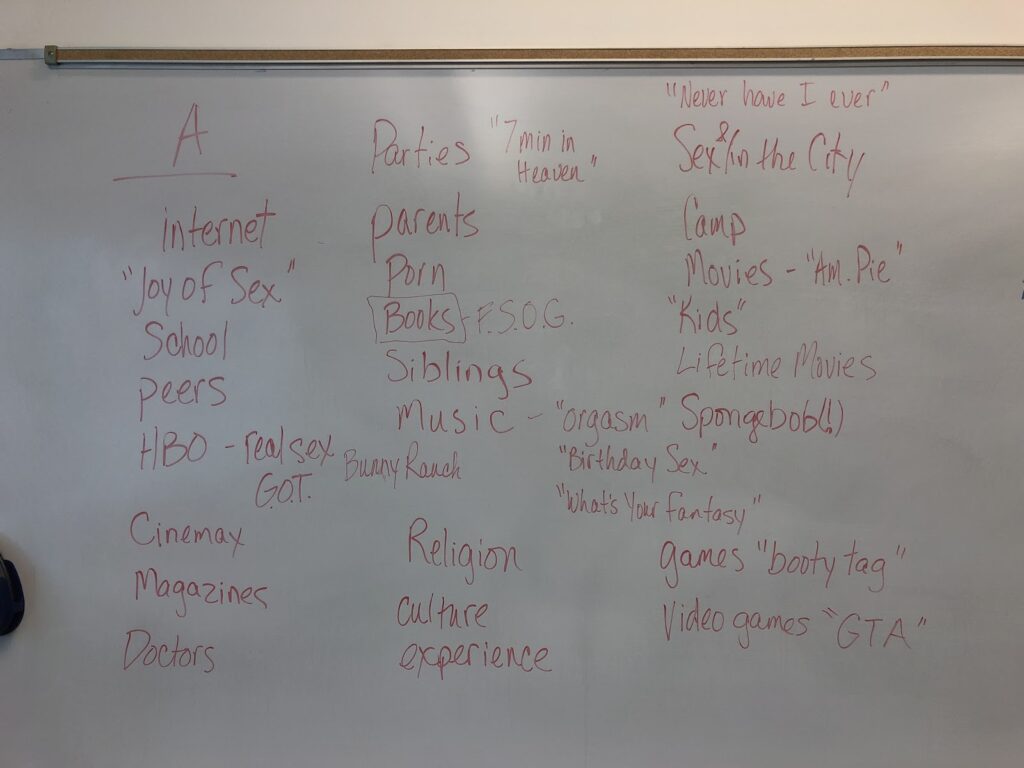 A
internet
"Joy of Sex"
School
peers
HBO - real sex
G.O.T.
Cinemax
Magazines
Doctors
Parties "7 min in
Heaven"
parents
Porn
Books - F.S.O.G.
Siblings
Music - "orgasm"
Bunny Ranch
"Birthday Sex"
"What's Your Fantasy"
Religion
culture
experience
"Never have I ever"
Sex &/in the City
Camp
Movies - "Am. Pie"
"Kids"
Lifetime Movies
Spongebob(!)
games "booty tag"
Video games "GTA"